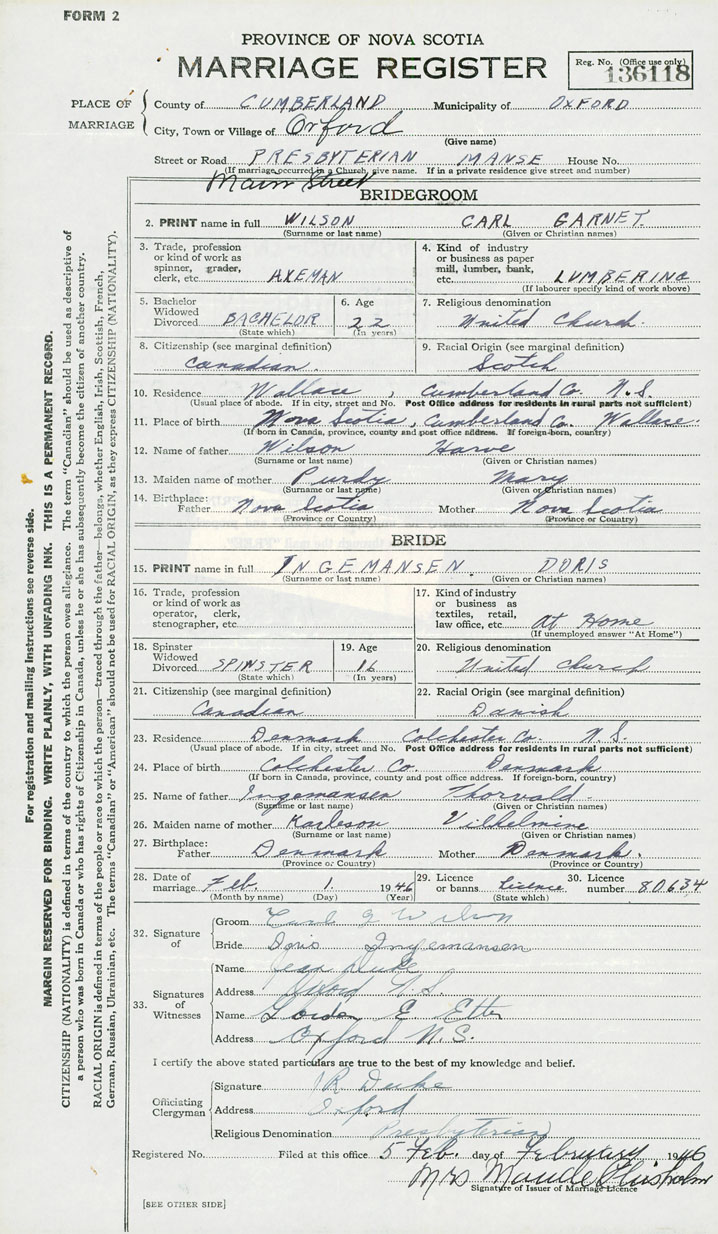 FORM 2
PROVINCE OF NOVA SCOTIA
MARRIAGE REGISTER
Reg. No. (Office use only)
136118
PLACE OF MARRIAGE
County of CUMBERLAND Municipality of OXFORD
City, Town or Village of Oxford
(Give name)
Street or Road PRESBYTERIAN MANSE House No.
(If marriage occurred in a Church, give name. If in a private residence give street and number)
Main Street
BRIDEGROOM
2. PRINT name in full WILSON CARL GARNET.
(Surname or last name) (Given or Christian names)
3. Trade, profession or kind of work as spinner, grader, clerk, etc. AXEMAN
4. Kind of industry or business as paper mill, lumber, bank, etc. LUMBERING
(If labourer specify kind of work above)
5. Bachelor Widowed Divorced BACHELOR
(State which)
6. Age 22
(In years)
7. Religious denomination
United Church.
8. Citizenship (see marginal definition)
Canadian.
9. Racial Origin (see marginal definition)
Scotch
10. Residence Wallace, Cumberland Co. N.S.
(Usual place of abode. If in city, street and No. Post Office address for residents in rural parts not sufficient)
11. Place of birth Nova Scotia, Cumberland Co. Wallace.
(If born in Canada, province, county and post office address. If foreign-born, country)
12. Name of father Wilson Harve
(Surname or last name) (Given or Christian names)
13. Maiden name of mother Purdy Mary
(Surname or last name) (Given or Christian names)
14. Birthplace: Father Nova Scotia Mother Nova Scotia
(Province or Country) (Province or Country)
BRIDE
15. PRINT name in full INGEMANSEN. DORIS
(Surname or last name) (Given or Christian names)
16. Trade, profession or kind of work as operator, clerk, stenographer, etc.
17. Kind of industry or business as textiles, retail, law office, etc. At Home
(If unemployed answer "At Home")
18. Spinster Widowed Divorced SPINSTER
(State which)
19. Age 16
(In years)
20. Religious denomination
United Church
21. Citizenship (see marginal definition)
Canadian
22. Racial Origin (see marginal definition)
Danish
23. Residence Denmark Colchester Co. N.S.
(Usual place of abode. If in city, street and No. Post Office address for residents in rural parts not sufficient)
24. Place of birth Colchester Co. Denmark
(If born in Canada, province, county and post office address. If foreign-born, country)
25. Name of father Ingemansen Thorvald.
(Surname or last name) (Given or Christian names)
26. Maiden name of mother Karlson Vilhelmine
(Surname or last name) (Given or Christian names)
27. Birthplace: Father Denmark Mother Denmark.
(Province or Country) (Province or Country)
28. Date of marriage Feb. 1. 1946
(Month by name) (Day) (Year)
29. Licence or banns licence
(State which)
30. Licence number 80634
32. Signature of
Groom Carl G Wilson
Bride Doris Ingemansen
33. Signatures of Witnesses
Name Jean Duke
Address Oxford N.S.
Name Gordon E Etter
Address Oxford N.S.
I certify the above stated particulars are true to the best of my knowledge and belief.
Officiating Clergyman
Signature R Duke
Address Oxford
Religious Denomination Presbyterian
Registered No. Filed at this office 5 Feb. day of February 1946
Mrs Maude Chisholm
Signature of Issuer of Marriage Licence
[SEE OTHER SIDE]
For registration and mailing instructions see reverse side.
MARGIN RESERVED FOR BINDING. WRITE PLAINLY, WITH UNFADING INK. THIS IS A PERMANENT RECORD.
CITIZENSHIP (NATIONALITY) is defined in terms of the country to which the person owes allegiance. The term "Canadian" should be used as descriptive of
a person who was born in Canada or who has rights of Citizenship in Canada, unless he or she has subsequently become the citizen of another country.
RACIAL ORIGIN is defined in terms of the people or race to which the person—traced through the father—belongs, whether English, Irish, Scottish, French,
German, Russian, Ukrainian, etc. The terms "Canadian" or "American" should not be used for RACIAL ORIGIN, as they express CITIZENSHIP (NATIONALITY).